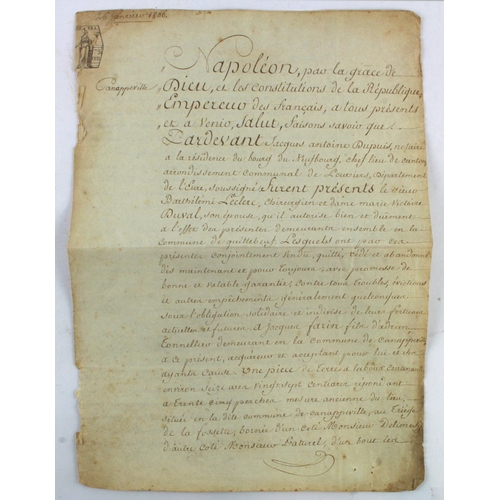 janvier 1806
Canappeville
Napoléon, par la grâce de
Dieu, et les constitutions de la République,
Empereur des français, a tous présents
et a venir, Salut, faisons savoir que
Pardevant Jacques antoine Dupuis, notaire
a la résidence du bourg du Neubourg, chef lieu de canton
arrondissement communal de Louviers, Département
de l'Eure, soussigné furent présents le sieur
Barthélemi Leclerc, Chirurgien et dame marie victoire
Duval, son épouse, qu'il autorise bien et duement
a l'effet des présentes demeurants ensemble en la
commune de quittebeuf, Lesquels ont par ces
présentes conjointement vendu, quitté, cédé et abandonné
dès maintenant et pour toujours avec promesse de
bonne et valable garantie, contre tous troubles, évictions
et autres empêchements généralement quelconques
sous l'obligation solidaire et indivise de leurs
actuelles et futurs a Jacques farin fils d'adrien
Tonnellier demeurant en la commune de canappeville
a ce présent, acquereur et acceptant pour lui et ses
ayants cause Une pièce de terre a labour contenant
environ seize ares vingt sept centiares répondant
a trente cinq perches mesure ancienne du lieu,
située en la dite commune de canappeville, au
de la fossette, bornée d'un coté Monsieur
d'autre coté Monsieur d'un bout les